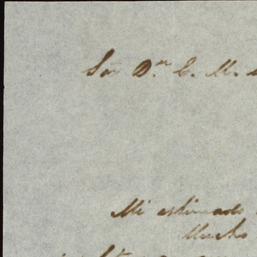 Sor Dn E. M.
Mi estimado
Mucho